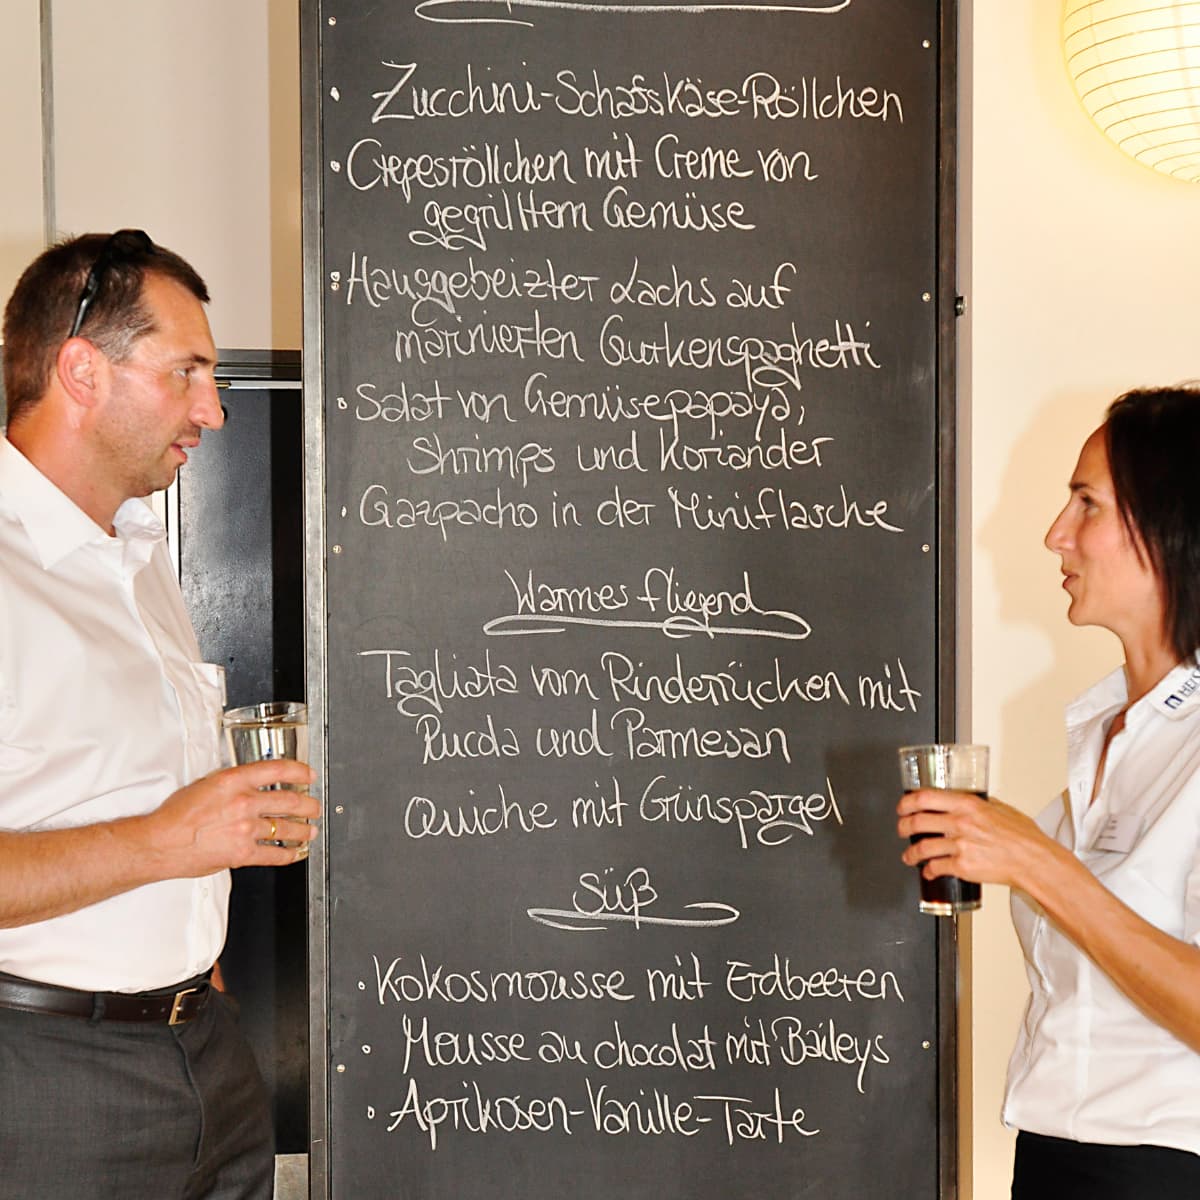 Zucchini-Schafskäse-Röllchen
Crepesröllchen mit Creme von
gegrilltem Gemüse
Hausgebeizter Lachs auf
marinierten Gurkenspaghetti
Salat von Gemüsepapaya,
Shrimps und Koriander
Gazpacho in der Miniflasche
Warmes fliegend
Tagliata vom Rinderrücken mit
Rucola und Parmesan
Quiche mit Grünspargel
Süß
Kokosmousse mit Erdbeeren
Mousse au chocolat mit Baileys
Aprikosen-Vanille-Tarte